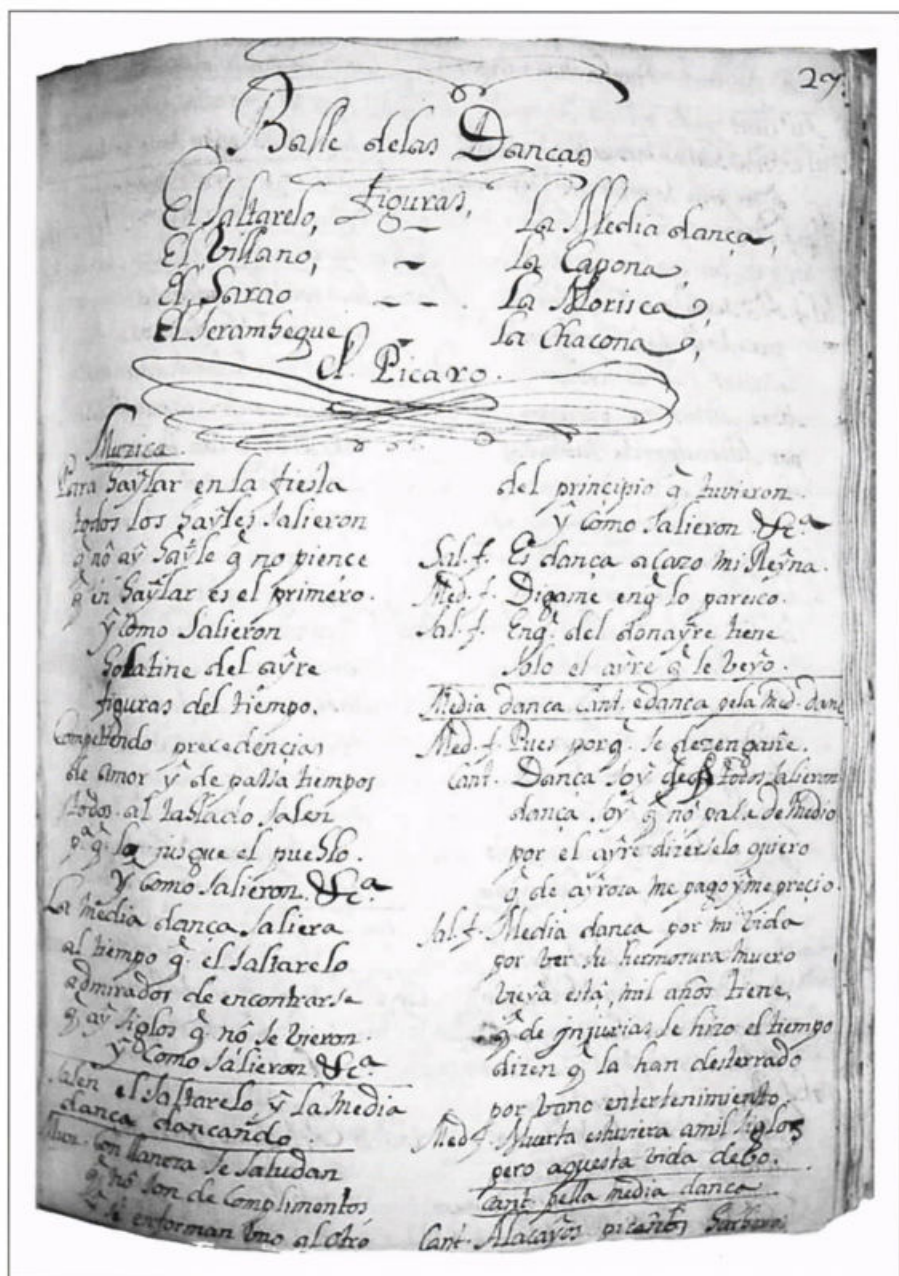 27.
Baile delas Danças
figuras,
El Saltarelo,
El Villano,
El Sarao
El Serambeque
La Media dança,
La Capona,
La Morisca,
La Chacona,
El Picaro.
Muzica
Para baylar en la fiesta
todos los bayles salieron
q̃ nõ ay bayle q̃ no pience
q̃ in baylar es el primero.
y como salieron
bolatine del ayre
figuras del tiempo.
Competendo precedencias
de amor y de passa tiempos
todos al tablado salen
pª q̃ los jusgue el pueblo.
y como salieron &cª
La media dança saliera
al tiempo q̃ el saltarelo
admirados de encontrarse
q̃ ay siglos q̃ nõ se vieron.
y como salieron &cª
Salen el Saltarelo, y la media
dança dançando
Muz. Con llaneza se saludan
q̃ nõ son de complimentos
se enforman uno al otro
del principio q̃ tuvieron.
y como salieron &cª
Sal. f. Es dança acazo mi Reyna.
Med. f. Digame enq̃ lo paresco.
Sal. f. Enq̃ del donayre tiene
solo el ayre q̃ le veyo.
Media dança Cant. e dança pela Med. danç
Med. f. Pues porq̃ se dezengañe.
Cant. Dança soy todos salieron
dança soy q̃ nõ passa de medio
por el ayre dizerselo quiero
q̃ de ayroza me pago y me precio.
Sal. f. Media dança por mi vida
por ver su hermosura muero
vieya está, mil años tiene,
q̃ de injurias le hizo el tiempo
dizen q̃ la han desterrado
por vano entertenimiento.
Med. f. Muerta estuviera a mil siglos
pero aquesta vida debo.
Cant. pella media dança
Cant. Alacayos picaños barberos